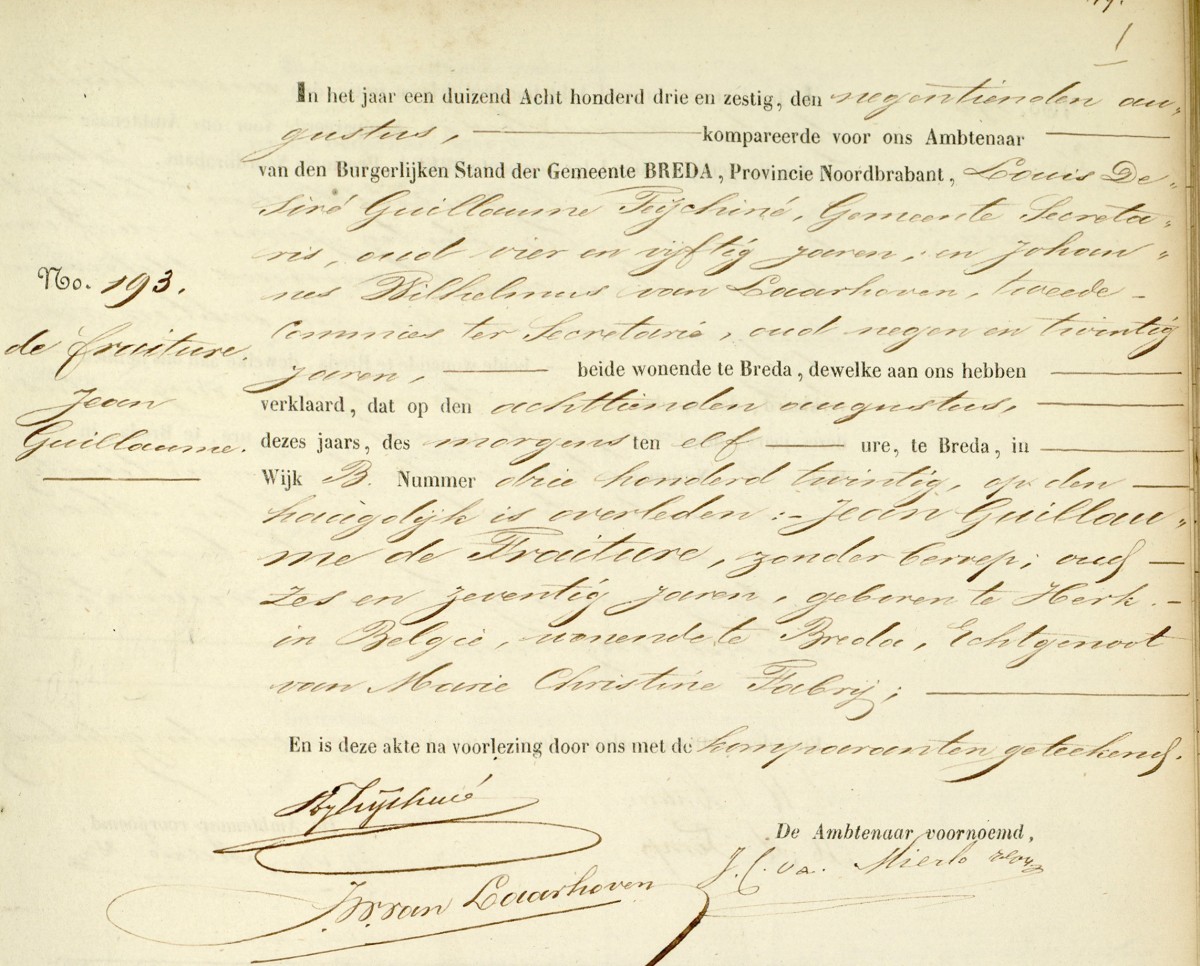 1
In het jaar een duizend Acht honderd drie en zestig, den negentienden au„
gustus, kompareerde voor ons Ambtenaar
van den Burgerlijken Stand der Gemeente BREDA, Provincie Noordbrabant, Louis De„
siré Guillaume Teychiné, Gemeente Secreta„
ris, oud vier en vijftig jaren, en Johan„
nes Wilhelmus van Laarhoven, tweede
Commies ter Secretarie, oud negen en twintig
jaren, beide wonende te Breda, dewelke aan ons hebben
verklaard, dat op den achttienden augustus,
dezes jaars, des morgens ten elf ure, te Breda, in
Wijk B. Nummer drie honderd twintig, op den
haagdijk is overleden :- Jean Guillau„
me de Fraiture, zonder beroep; oud
zes en zeventig jaren, geboren te Herk
in Belgie, wonende te Breda, Echtgenoot
van Marie Christine Fabrij;
En is deze akte na voorlezing door ons met de komparanten geteekend.
No. 193.
de fraiture.
Jean
Guillaume.
De Ambtenaar voornoemd,
J. C. va. Mierlo
JW van Laarhoven